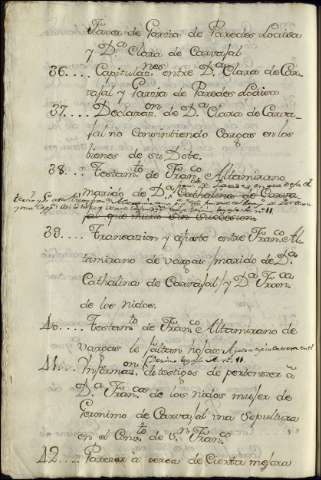 Flavor de Garcia de Paredes Loaisa
y D.ª Clara de Carvajal
36.... Capitulaz.nes entre D.ª Clara de Car-
vajal y Garcia de Paredes Loaisa
37.... Declaraz.on de D.ª Clara de Carva-
jal no consintiendo Cargas en los
bienes de su Dote.
38... Testam.to de Fran.co Altamirano
marido de D.ª Catholina de Carva-
jal que murio sin subcesion
39.... Transaccion y ajuste entre Fran.co Al-
tamirano de vargas marido de D.ª
Cathalina de Carvajal y D.ª Fran.ca
de los Nidos.
40.... Testam.to de Fran.co Altamirano de
vargas le faltan hojas
41.... Informaz.on de testigos de pertenezer a
D.ª Fran.ca de los Nidos muger de
Geronimo de Carvajal una Sepultura
en el Conv.to de S.n Fran.co
42.... Parezer a zerca de cierta mejora